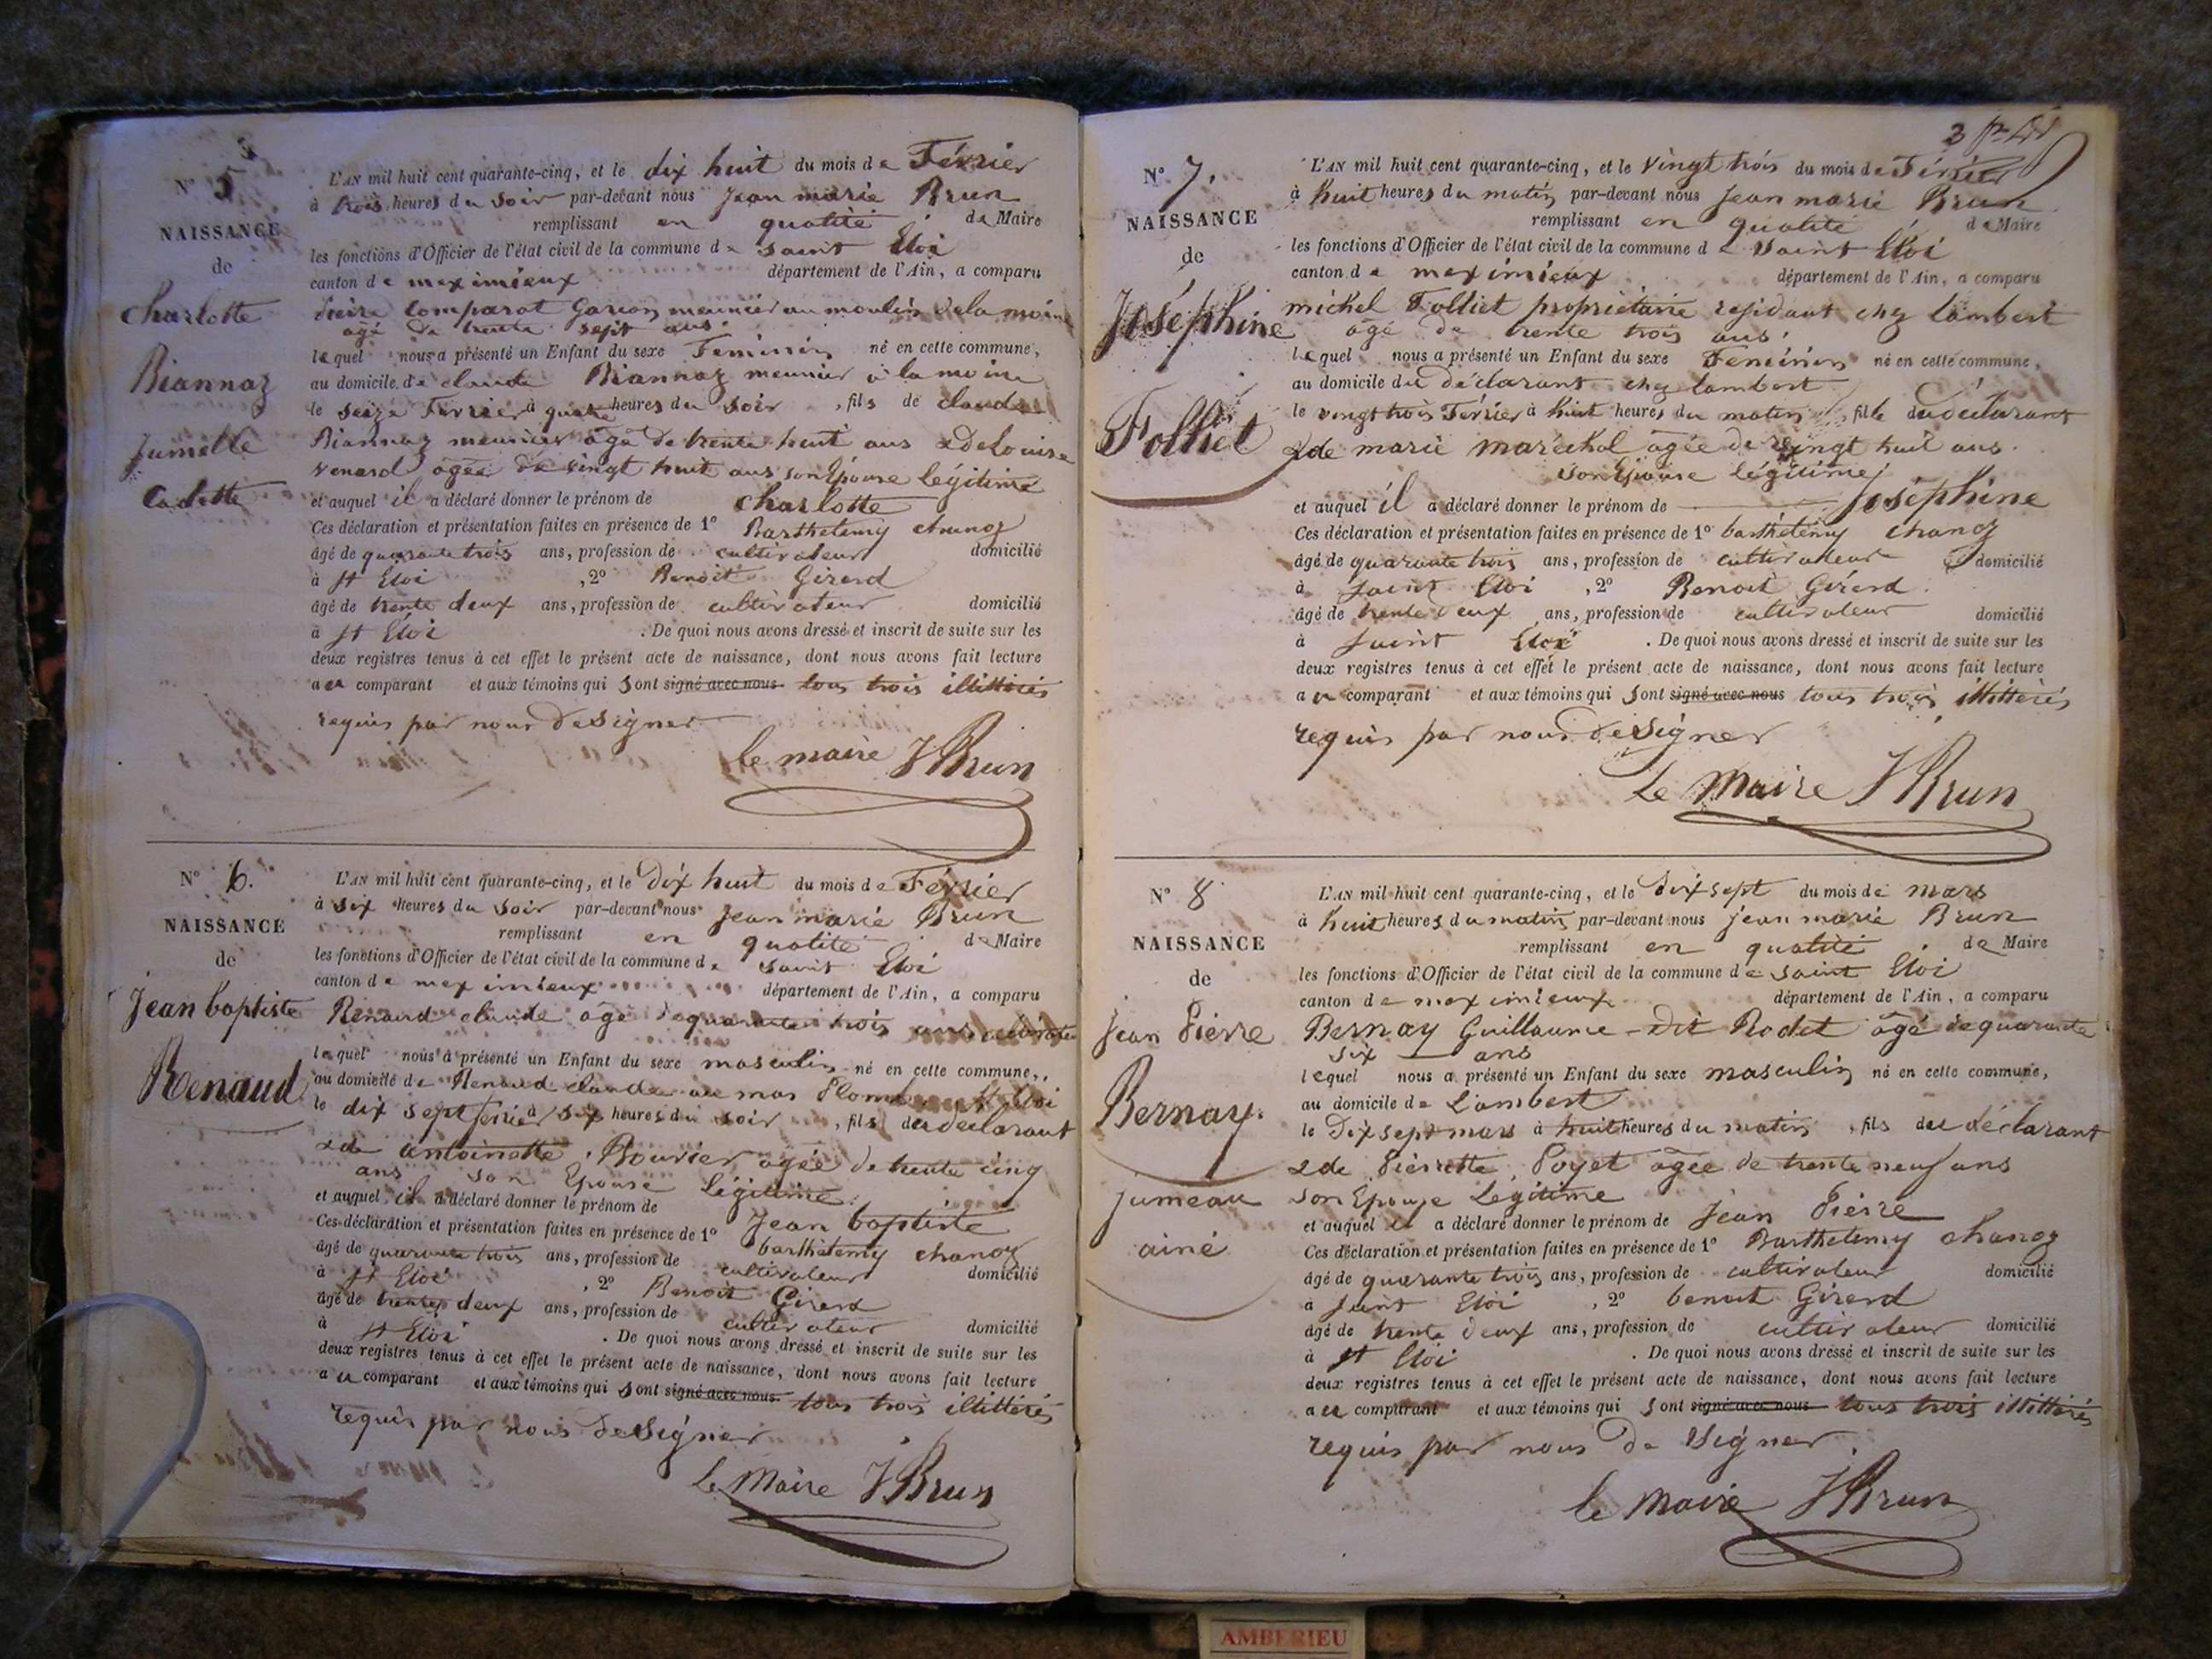 3
N° 5
NAISSANCE
de
Charlotte
Biannaz
Jumelle
Cadette
L'AN mil huit cent quarante-cinq, et le dix huit du mois de Février
à trois heures du soir par-devant nous Jean marie Brun
remplissant en qualité de Maire
les fonctions d'Officier de l'état civil de la commune de saint Eloi
canton de meximieux département de l'Ain, a comparu
pierre Comparat Garçon meunier au moulin dela moine
agé de trente sept ans
lequel nous a présenté un Enfant du sexe Feminin né en cette commune,
au domicile de claude Biannaz meunier à la moine
le seize Fevrier à quatre heures du soir, fils de claude
Biannaz meunier âgé de trente huit ans & De Louise
venard agée de vingt huit ans son Epouse légitime
et auquel il a déclaré donner le prénom de charlotte
Ces déclaration et présentation faites en présence de 1° Barthelemy chanoz
âgé de quarante trois ans, profession de cultivateur domicilié
à St Eloi, 2° Benoit Girerd
âgé de trente deux ans, profession de cultivateur domicilié
à St Eloi. De quoi nous avons dressé et inscrit de suite sur les
deux registres tenus à cet effet le présent acte de naissance, dont nous avons fait lecture
au comparant et aux témoins qui sont signé avec nous tous trois illittérés
requis par nous De signer
le maire JBrun
N° 6.
NAISSANCE
de
Jean baptiste
Renaud
L'AN mil huit cent quarante-cinq, et le Dix huit du mois de Février
à six heures du soir par-devant nous Jean marie Brun
remplissant en qualité de Maire
les fonctions d'Officier de l'état civil de la commune de saint Eloi
canton de meximieux département de l'Ain, a comparu
Renaud claude âgé de quarante trois ans cultivateur
lequel nous a présenté un Enfant du sexe masculin né en cette commune,
au domicile de Renaud claude au mas St Eloi
le dix sept fevrier à six heures du soir, fils du déclarant
& de antoinette Bouvier agée de trente cinq
ans son Epouse Légitime
et auquel il a déclaré donner le prénom de Jean baptiste
Ces déclaration et présentation faites en présence de 1° barthelemy chanoz
âgé de quarante trois ans, profession de cultivateur domicilié
à St Eloi, 2° Benoit Girerd
âgé de trente deux ans, profession de cultivateur domicilié
à St Eloi. De quoi nous avons dressé et inscrit de suite sur les
deux registres tenus à cet effet le présent acte de naissance, dont nous avons fait lecture
au comparant et aux témoins qui sont signé avec nous tous trois illittérés
requis par nous De signer
Le Maire JBrun
3
N° 7.
NAISSANCE
de
Joséphine
Folliet
L'AN mil huit cent quarante-cinq, et le vingt trois du mois de Février
à huit heures du matin par-devant nous Jean marie Brun
remplissant en qualité de Maire
les fonctions d'Officier de l'état civil de la commune de Saint Eloi
canton de meximieux département de l'Ain, a comparu
michel Folliet propriétaire residant chez Lambert
agé de trente trois ans
lequel nous a présenté un Enfant du sexe Feminin né en cette commune,
au domicile du Déclarant chez Lambert
le vingt trois Février à huit heures du matin, fille du déclarant
& de marie maréchal agée de vingt huit ans
son Epouse légitime
et auquel il a déclaré donner le prénom de Joséphine
Ces déclaration et présentation faites en présence de 1° barthélemy chanoz
âgé de quarante trois ans, profession de cultivateur domicilié
à Saint Eloi, 2° Benoit Girerd
âgé de trente deux ans, profession de cultivateur domicilié
à Saint Eloi. De quoi nous avons dressé et inscrit de suite sur les
deux registres tenus à cet effet le présent acte de naissance, dont nous avons fait lecture
au comparant et aux témoins qui sont signé avec nous tous trois illittérés
requis par nous De signer
Le Maire JBrun
N° 8
NAISSANCE
de
Jean Pierre
Bernay
jumeau
ainé
L'AN mil huit cent quarante-cinq, et le dix sept du mois de mars
à huit heures du matin par-devant nous jean marie Brun
remplissant en qualité de Maire
les fonctions d'Officier de l'état civil de la commune de saint Eloi
canton de meximieux département de l'Ain, a comparu
Bernay Guillaume Dit Rodet âgé de quarante
six ans
lequel nous a présenté un Enfant du sexe masculin né en cette commune,
au domicile de Lambert
le Dix sept mars à huit heures du matin, fils du déclarant
& de Pierrette Poyet âgée de trente neuf ans
son Epouse Légitime
et auquel il a déclaré donner le prénom de Jean Pierre
Ces déclaration et présentation faites en présence de 1° Barthelemy chanoz
âgé de quarante trois ans, profession de cultivateur domicilié
à Saint Eloi, 2° benoit Girerd
âgé de trente deux ans, profession de cultivateur domicilié
à St Eloi. De quoi nous avons dressé et inscrit de suite sur les
deux registres tenus à cet effet le présent acte de naissance, dont nous avons fait lecture
au comparant et aux témoins qui sont signé avec nous tous trois illittérés
requis par nous De signer
le Maire JBrun
AMBERIEU